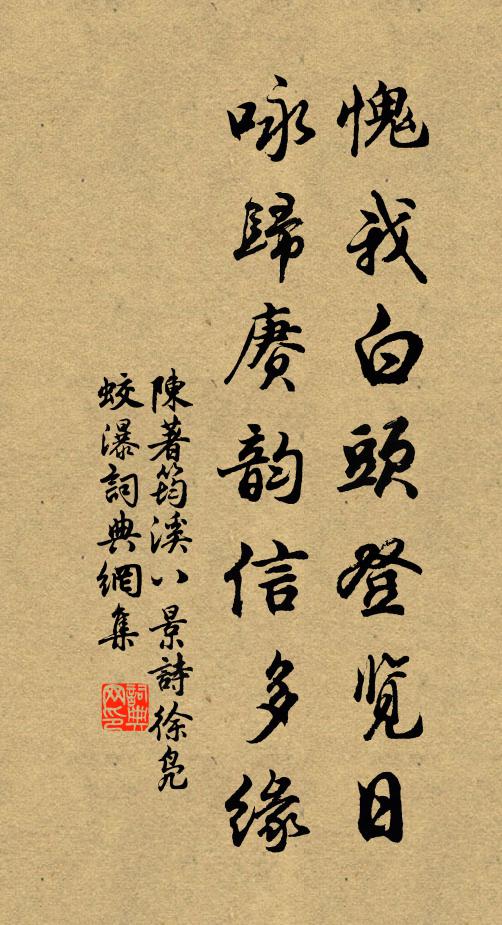 愧我白頭登览日
咏歸赓韵信多緣
陳著筠溪八景詩徐凫
蛟瀑詞典網集
詞典
网印